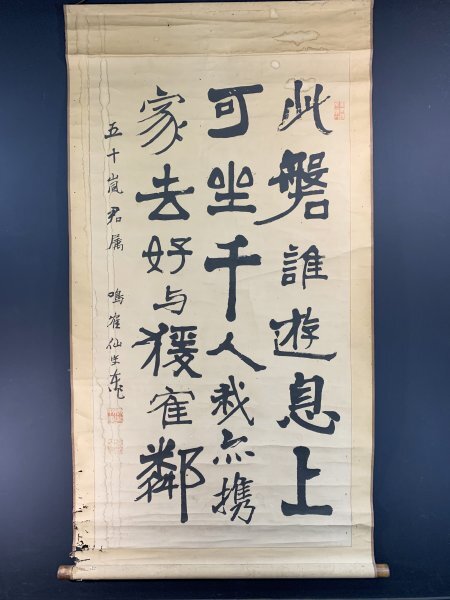 此磐誰遊息上
可坐千人我亦携
家去好与猨寉鄰
五十嵐君属　鳴寉仙史東作